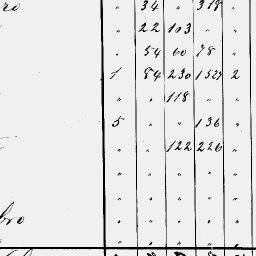 ro " 34 " 318 "
" 22 103 " "
" 54 60 78 "
1 84 230 152 2
" " 118
5 " " 136 "
" " 122 226 "
" " " " "
" " " " "
bro " " " " "
" " " " "